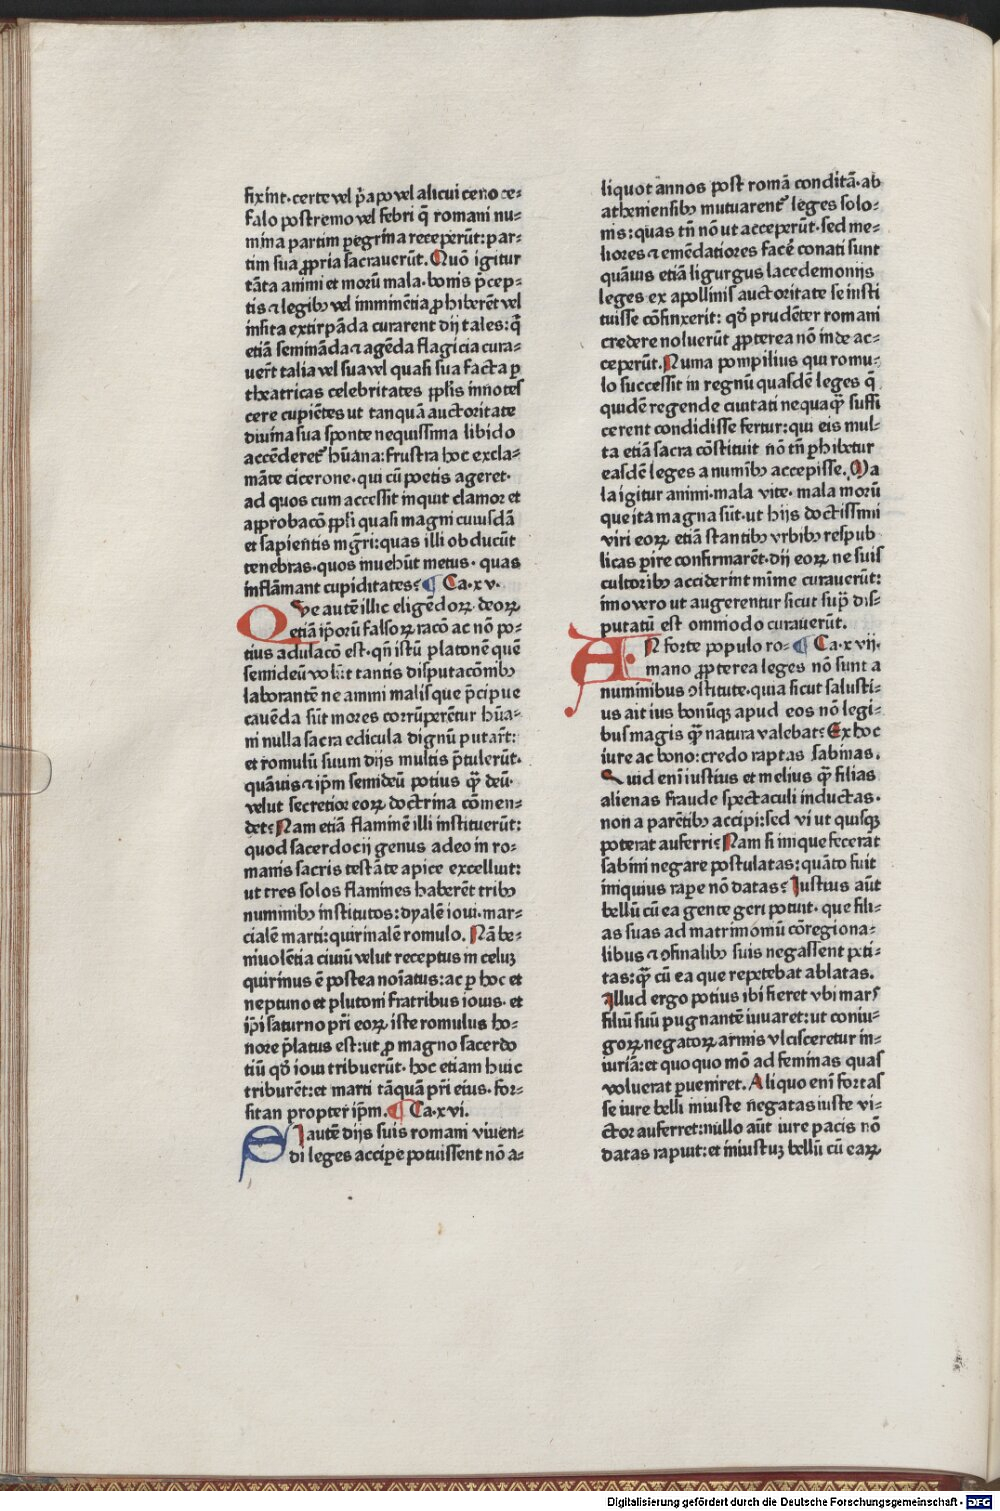 fixint·certe vel p̄apo vel alicui cenoce⸗
falo postremo vel febri q̄ romani nu⸗
mina partim pegrina receperūt: par⸗
tim sua ꝓpria sacrauerūt. Quō igitur
tāta animi et morū mala·bonis p̄cep⸗
tis ⁊ legibꝫ vel imminētia ꝓhiberēt vel
insita extirpāda curarent dij tales: q̄
etiā semināda ⁊ agēda flagicia cura⸗
uer̄t talia vel sua vel quasi sua facta ꝑ
theatricas celebritates ꝓplis innotes
cere cupiētes ut tanquā auctoritate
diuina sua sponte nequissima libido
accēderet᷑ hūana: frustra hoc excla⸗
māte cicerone·qui cū poetis ageret·
ad quos cum accessit inquit clamor et
aꝓbacō ꝓpli quasi magni cuiusdā
et sapientis mgr̄i: quas illi obducūt
tenebras·quos inuehūt metus·quas
inflāmant cupiditates? ¶ Ca·xv·
Que autē illic eligēdoꝝ deoꝝ
etiā ip̄orū falsoꝝ racō ac nō po⸗
tius adulacō est·qn̄ istū platonē quē
semideū volūt tantis disputacōnibꝫ
laborantē ne animi malis que p̄cipue
cauēda sūt mores corrūperētur hūa⸗
ni nulla sacra edicula dignū putar̄t:
et romulū suum dijs multis p̄tulerūt·
quāuis ⁊ ip̄m semideū potius q̄ꝫ deū·
velut secretior eoꝝ doctrina cōmen⸗
det? Nam etiā flaminē illi instituerūt:
quod sacerdocij genus adeo in ro⸗
manis sacris testāte apice excelluit:
ut tres solos flamines haberēt tribꝫ
numinibꝫ institutos: dyalē ioui·mar⸗
cialē marti: quirinalē romulo. Nā be⸗
niuolētia ciuiū velut receptus in celuꝫ
quirinus ē postea noīatus: ac ꝑ hoc et
neptuno et plutoni fratribus iouis·et
ip̄i saturno pr̄i eoꝝ iste romulus ho⸗
nore p̄latus est: ut ꝓ magno sacerdo
tiū qd̄ ioui tribuerūt·hoc etiam huic
triburēt: et marti tāquā pr̄i eius·for⸗
sitan propter ip̄m. ¶ Ca·xvi.
SI autē dijs suis romani viuen⸗
di leges accipe potuissent nō a⸗
liquot annos post romā conditā·ab
atheniensibꝫ mutuarent᷑ leges solo⸗
nis: quas tn̄ nō ut acceperūt·sed me⸗
liores ⁊ emēdatiores facē conati sunt
quāuis etiā ligurgus lacedemonijs
leges ex apollinis auctoritate se insti
tuisse cōfinxerit: qd̄ prudēter romani
credere noluerūt ꝓpterea nō inde ac⸗
ceperūt. Numa pompilius qui romu⸗
lo successit in regnū quasdē leges q̄
quidē regende ciuitati nequaq̄ꝫ suffi
cerent condidisse fertur: qui eis mul⸗
ta etiā sacra cōstituit nō tn̄ ꝑhibetur
easdē leges a numībꝫ accepisse. Ma
la igitur animi·mala vite·mala morū
que ita magna sūt·ut hijs doctissimi
viri eoꝝ etiā stantibꝫ vrbibꝫ respub
licas ꝑire confirmarēt·dij eoꝝ ne suis
cultoribꝫ acciderint mīme curauerūt:
imo vero ut augerentur sicut sup̄ dis⸗
putatū est ommodo curauerūt.
AN forte populo ro⸗ ¶ Ca·xvij·
mano ꝓpterea leges nō sunt a
numinibus ꝯstitute·quia sicut salusti⸗
us ait ius bonūqꝫ apud eos nō legi⸗
bus magis q̄ꝫ natura valebat? Ex hoc
iure ac bono: credo raptas sabinas.
Quid enī iustius et melius q̄ꝫ filias
alienas fraude spectaculi inductas·
non a parētibꝫ accipi: sed vi ut quisqꝫ
poterat auferri? Nam si inique fecerāt
sabini negare postulatas: quāto fuit
iniquius rape nō datas? Iustius aūt
bellū cū ea gente geri potuit·que fili⸗
as suas ad matrimoniū cōregiona⸗
libus ⁊ ꝯfinalibꝫ suis negassent peti⸗
tas: q̄ꝫ cū ea que repetebat ablatas.
Illud ergo potius ibi fieret vbi mars
filiū suū pugnantē iuuaret: ut coniu⸗
goꝝ negatoꝝ armis vlcisceretur in⸗
iuriā: et quo quo mō ad feminas quas
voluerat ꝑueniret. Aliquo enī fortas
se iure belli iniuste negatas iuste vi⸗
ctor auferret: nullo aūt iure pacis nō
datas rapuit: et iniustuꝫ bellū cū eaꝝ
Digitalisierung gefördert durch die Deutsche Forschungsgemeinschaft - DFG